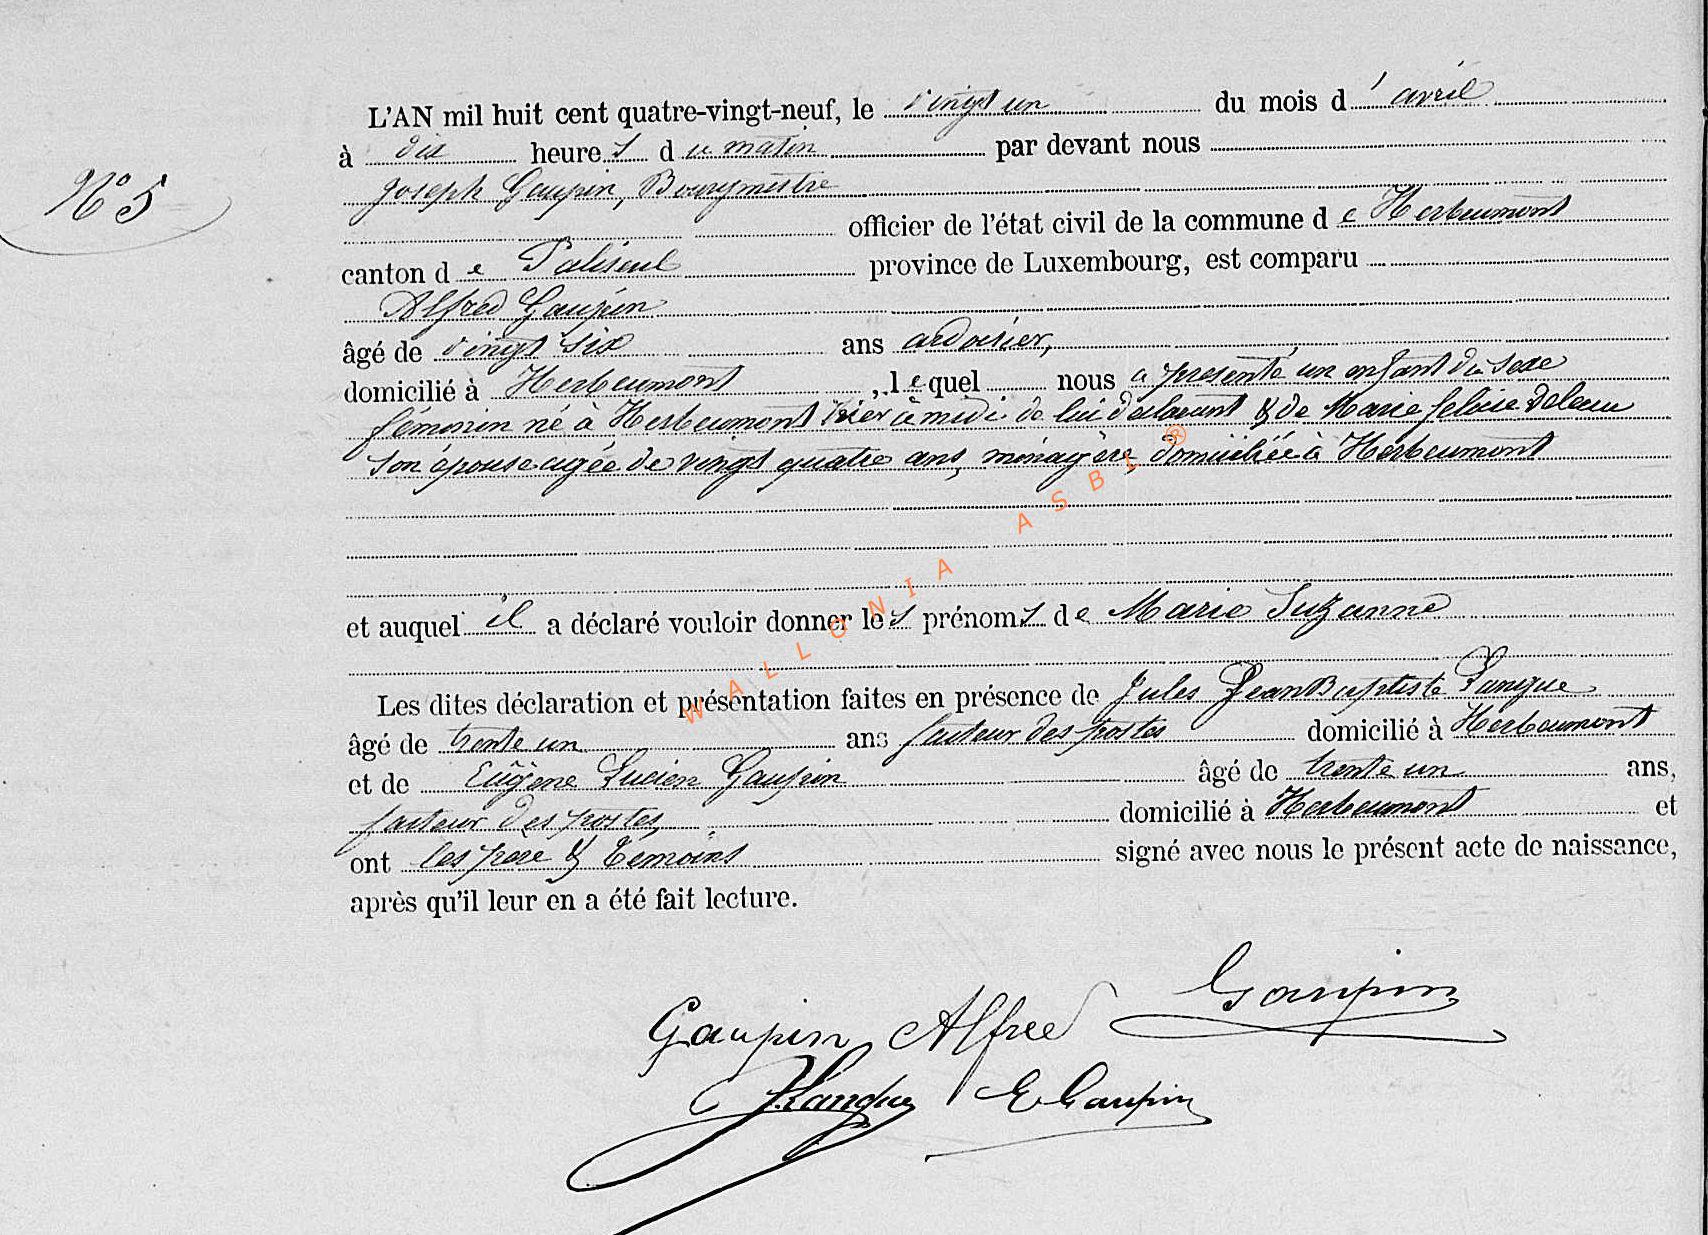 L'AN mil huit cent quatre-vingt-neuf, le vingt un du mois d'avril
à dix heures du matin par devant nous
N° 5
Joseph Gaupin, Bourgmestre
officier de l'état civil de la commune de Herbeumont
canton de Paliseul province de Luxembourg, est comparu
Alfred Gaupin
âgé de vingt six ans ardoisier,
domicilié à Herbeumont, lequel nous a présenté un enfant du sexe
féminin né à Herbeumont hier à midi de lui déclarant & de Marie
son épouse agée de vingt quatre ans, ménagère, domiciliée à Herbeumont
et auquel il a déclaré vouloir donner les prénoms de Marie Suzanne
Les dites déclaration et présentation faites en présence de Jules Jean Baptiste
âgé de trente un ans facteur des postes domicilié à Herbeumont
et de Eugène Lucien Gaupin âgé de trente un ans,
facteur des postes, domicilié à Herbeumont et
ont les père & témoins signé avec nous le présent acte de naissance,
après qu'il leur en a été fait lecture.
WALLONIA ASBL ®
Gaupin
Gaupin Alfred
E Gaupin